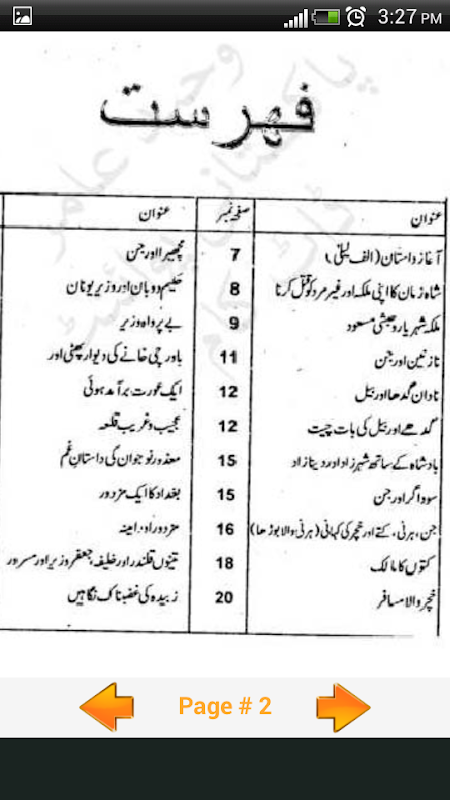 3:27 PM
فہرست
عنوان صفحہ نمبر عنوان
آغاز داستان (الف لیلیٰ) 7 مچھیرا اور جن
شاہ زمان کا اپنی ملکہ اور غیر مرد کو قتل کرنا 8 حکیم دوبان اور وزیر یونان
ملکہ شہریار و حبشی مسعود 9 بے پرواہ وزیر
نازنین اور جن 11 باورچی خانے کی دیوار پھٹی اور
نادان گدھا اور بیل 12 ایک عورت برآمد ہوئی
گدھے اور بیل کی بات چیت 12 عجیب و غریب قلعہ
بادشاہ کے ساتھ شہرزاد اور دینا زاد 15 معذور نوجوان کی داستان غم
سوداگر اور جن 15 بغداد کا ایک مزدور
جن، ہرنی، کتے اور خچر کی کہانی (ہرنی والا بوڑھا) 16 مزدور اور امینہ
کتوں کا مالک 18 تینوں قلندر اور خلیفہ، جعفر وزیر اور مسرور
خچر والا مسافر 20 زبیدہ کی غضبناک نگاہیں
Page # 2